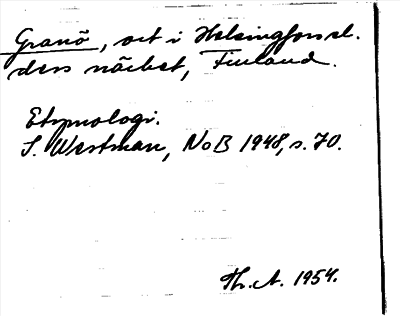 Granö, ort i Helsingfors el.
dess närhet, Finland.
Etymologi.
S. Westman, NoB 1948, s. 70.
Th. A. 1954.